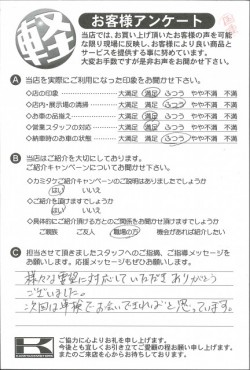 軽
お客様アンケート
当店では、お買い上げ頂いたお客様の声を可能
な限り現場に反映し、お客様により良い商品と
サービスを提供する事に努めています。
大変お手数ですが是非お声をお聞かせ下さい。
A 当店を実際にご利用になった印象をお聞かせ下さい。
◇店の印象 大満足 満足 ふつう やや不満 不満
◇店内・展示場の清掃 大満足 満足 ふつう やや不満 不満
◇お車の品揃え 大満足 満足 ふつう やや不満 不満
◇営業スタッフの対応 大満足 満足 ふつう やや不満 不満
◇納車時のお車の状態 大満足 満足 ふつう やや不満 不満
B 当店はご紹介を大切にしております。
ご紹介キャンペーンについてお聞かせ下さい。
◇カミタケご紹介キャンペーンのご説明はありましたでしょうか
はい いいえ
◇ご紹介を頂けますでしょうか
はい いいえ
◇具体的にご紹介頂ける方とのご関係をお聞かせ頂けますでしょうか
ご親族 ご友人 職場の方 機会があれば紹介したい
C 担当させて頂きましたスタッフへのご指摘、ご指導メッセージを
お願いします。応援メッセージもぜひお願いします。
様々な要望に対応していただきありがとう
ございました。
次回は車検でお会いできればと思っています。
K
ご協力に心よりお礼を申し上げます。
今後とも宜しくお引き立てご愛顧の程お願い申し上げます。
またのご来店を心からお待ちしております。